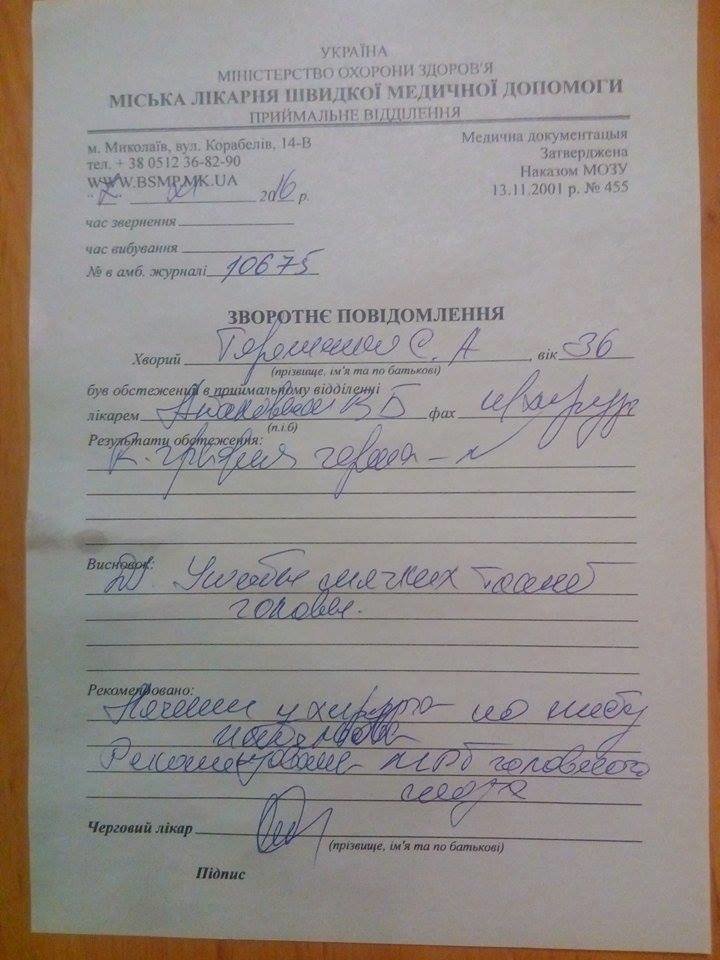 УКРАЇНА
МІНІСТЕРСТВО ОХОРОНИ ЗДОРОВ'Я
МІСЬКА ЛІКАРНЯ ШВИДКОЇ МЕДИЧНОЇ ДОПОМОГИ
ПРИЙМАЛЬНЕ ВІДДІЛЕННЯ
м. Миколаїв, вул. Корабелів, 14-В
тел. + 38 0512 36-82-90
WWW.BSMP.MK.UA
Медична документацыя
Затверджена
Наказом МОЗУ
13.11.2001 р. № 455
2016 р.
час звернення
час вибування
№ в амб. журналі 10675
ЗВОРОТНЄ ПОВІДОМЛЕННЯ
Хворий С. А , вік 36
(прізвище, ім'я та по батькові)
був обстежений в приймальному відділенні
лікарем В Б фах
(п.і.б)
Результати обстеження:
Висновок:
Ds. Ушибы мягких тканей
головы.
Рекомендовано:
у хирурга по
МРТ головного
мозга
Черговий лікар
(прізвище, ім'я та по батькові)
Підпис